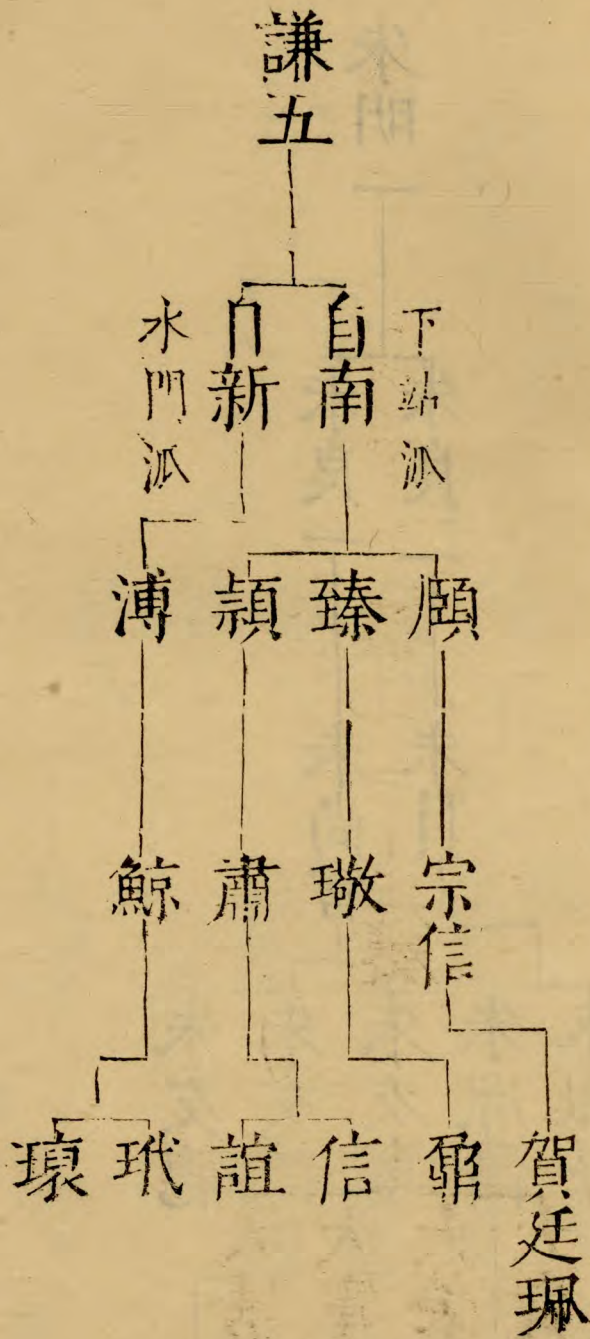 謙五
下站派
自南
自新
水門派
頤
臻
頴
溥
宗信
璥
譾
鯨
賀廷珮
鼐
信
誼
玳
瓌